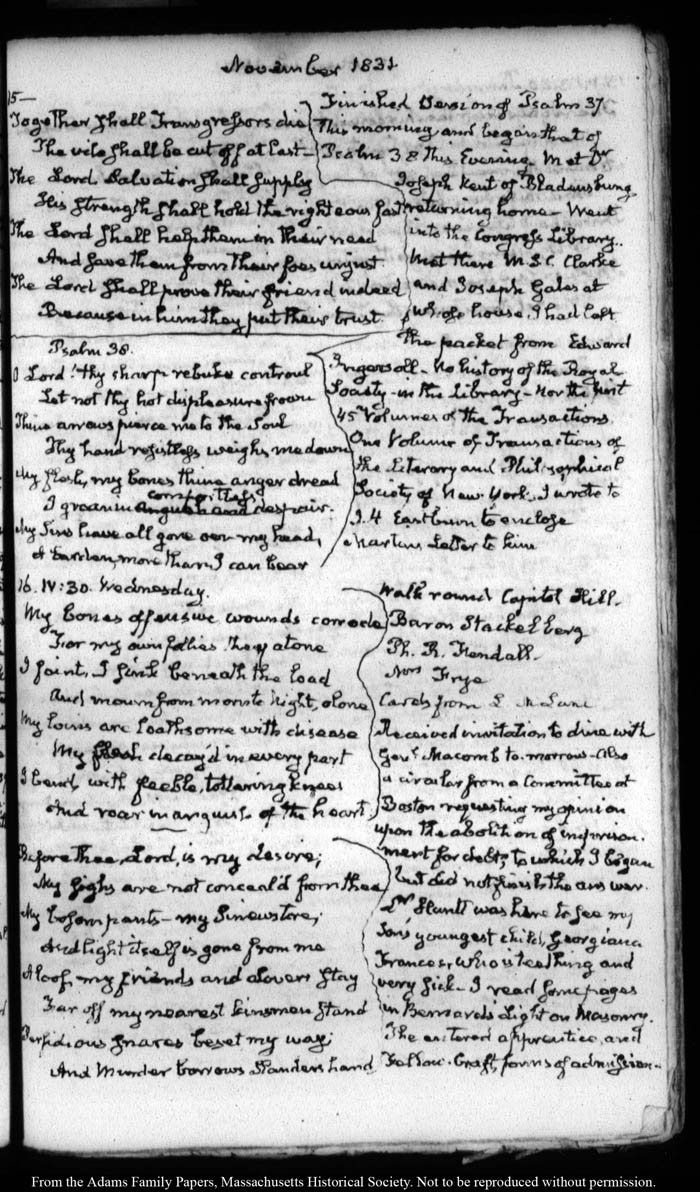 November 1831
15—
Together shall Transgressors die
The vile shall be cut off at last—
The Lord Salvation shall supply
His strength shall hold the righteous fast
The Lord shall help them in their need
And save them from their foes unjust
The Lord shall prove their friend indeed
Because in him they put their trust
Psalm 38.
O Lord! thy sharp rebuke controul
Let not thy hot displeasure frown
Thine arrows pierce me to the Soul
Thy hand resistless weighs me down
My flesh, my bones thine anger dread
comfortless
I groan in anguish and despair.
My Sins have all gone over my head,
A burden, more than I can bear
Finished Version of Psalm 37
This morning and began that of
Psalm 38 this Evening. Met Dr
Joseph Kent of Bladensburg
returning home— Went
into the Congress Library.
Met there M. S. C. Clarke
and Joseph Gales at
whose house, I had left
the packet from Edward
Ingersoll— No history of the Royal
Society— in the Library— Nor the first
45 Volumes of the Transactions.
One Volume of Transactions of
the Literary and Philosophical
Society of New-York. I wrote to
I. H Eastburn to enclose
Martin's Letter to him
16. IV:30. Wednesday.
My bones offensive wounds corrode
For my own follies, they atone
I faint, I sink beneath the load
And mourn from morn to Night, alone
My loins are loathsome with disease
My flesh decay'd in every part
I bend, with feeble, tottering knees
And roar in anguish of the heart.
Before thee, Lord, is my desire;
My sighs are not conceal'd from thee
My bosom pants— my Sinews tire;
And light itself is gone from me
Aloof, my friends and Lovers stay
Far off my nearest kinsmen stand
Perfidious snares beset my way;
And Murder borrows Slanders hand
Walk round Capitol Hill.
Baron Stackelberg
Ph. R. Fendall—
Mrs Frye
Cards from L. McLane
Received invitation to dine with
Genl Macomb to-morrow— Also
a circular from a Committee at
Boston requesting my opinion
upon the abolition of imprison-
ment for debt; to which I began
but did not finish the answer.
Dr Huntt was here to see my
Son's youngest child, Georgiana
Frances, who is teething and
very sick— I read some pages
in Bernard's Light on Masonry.
The entered apprentice, and
Fellow-Craft, forms of admission—
From the Adams Family Papers, Massachusetts Historical Society. Not to be reproduced without permission.